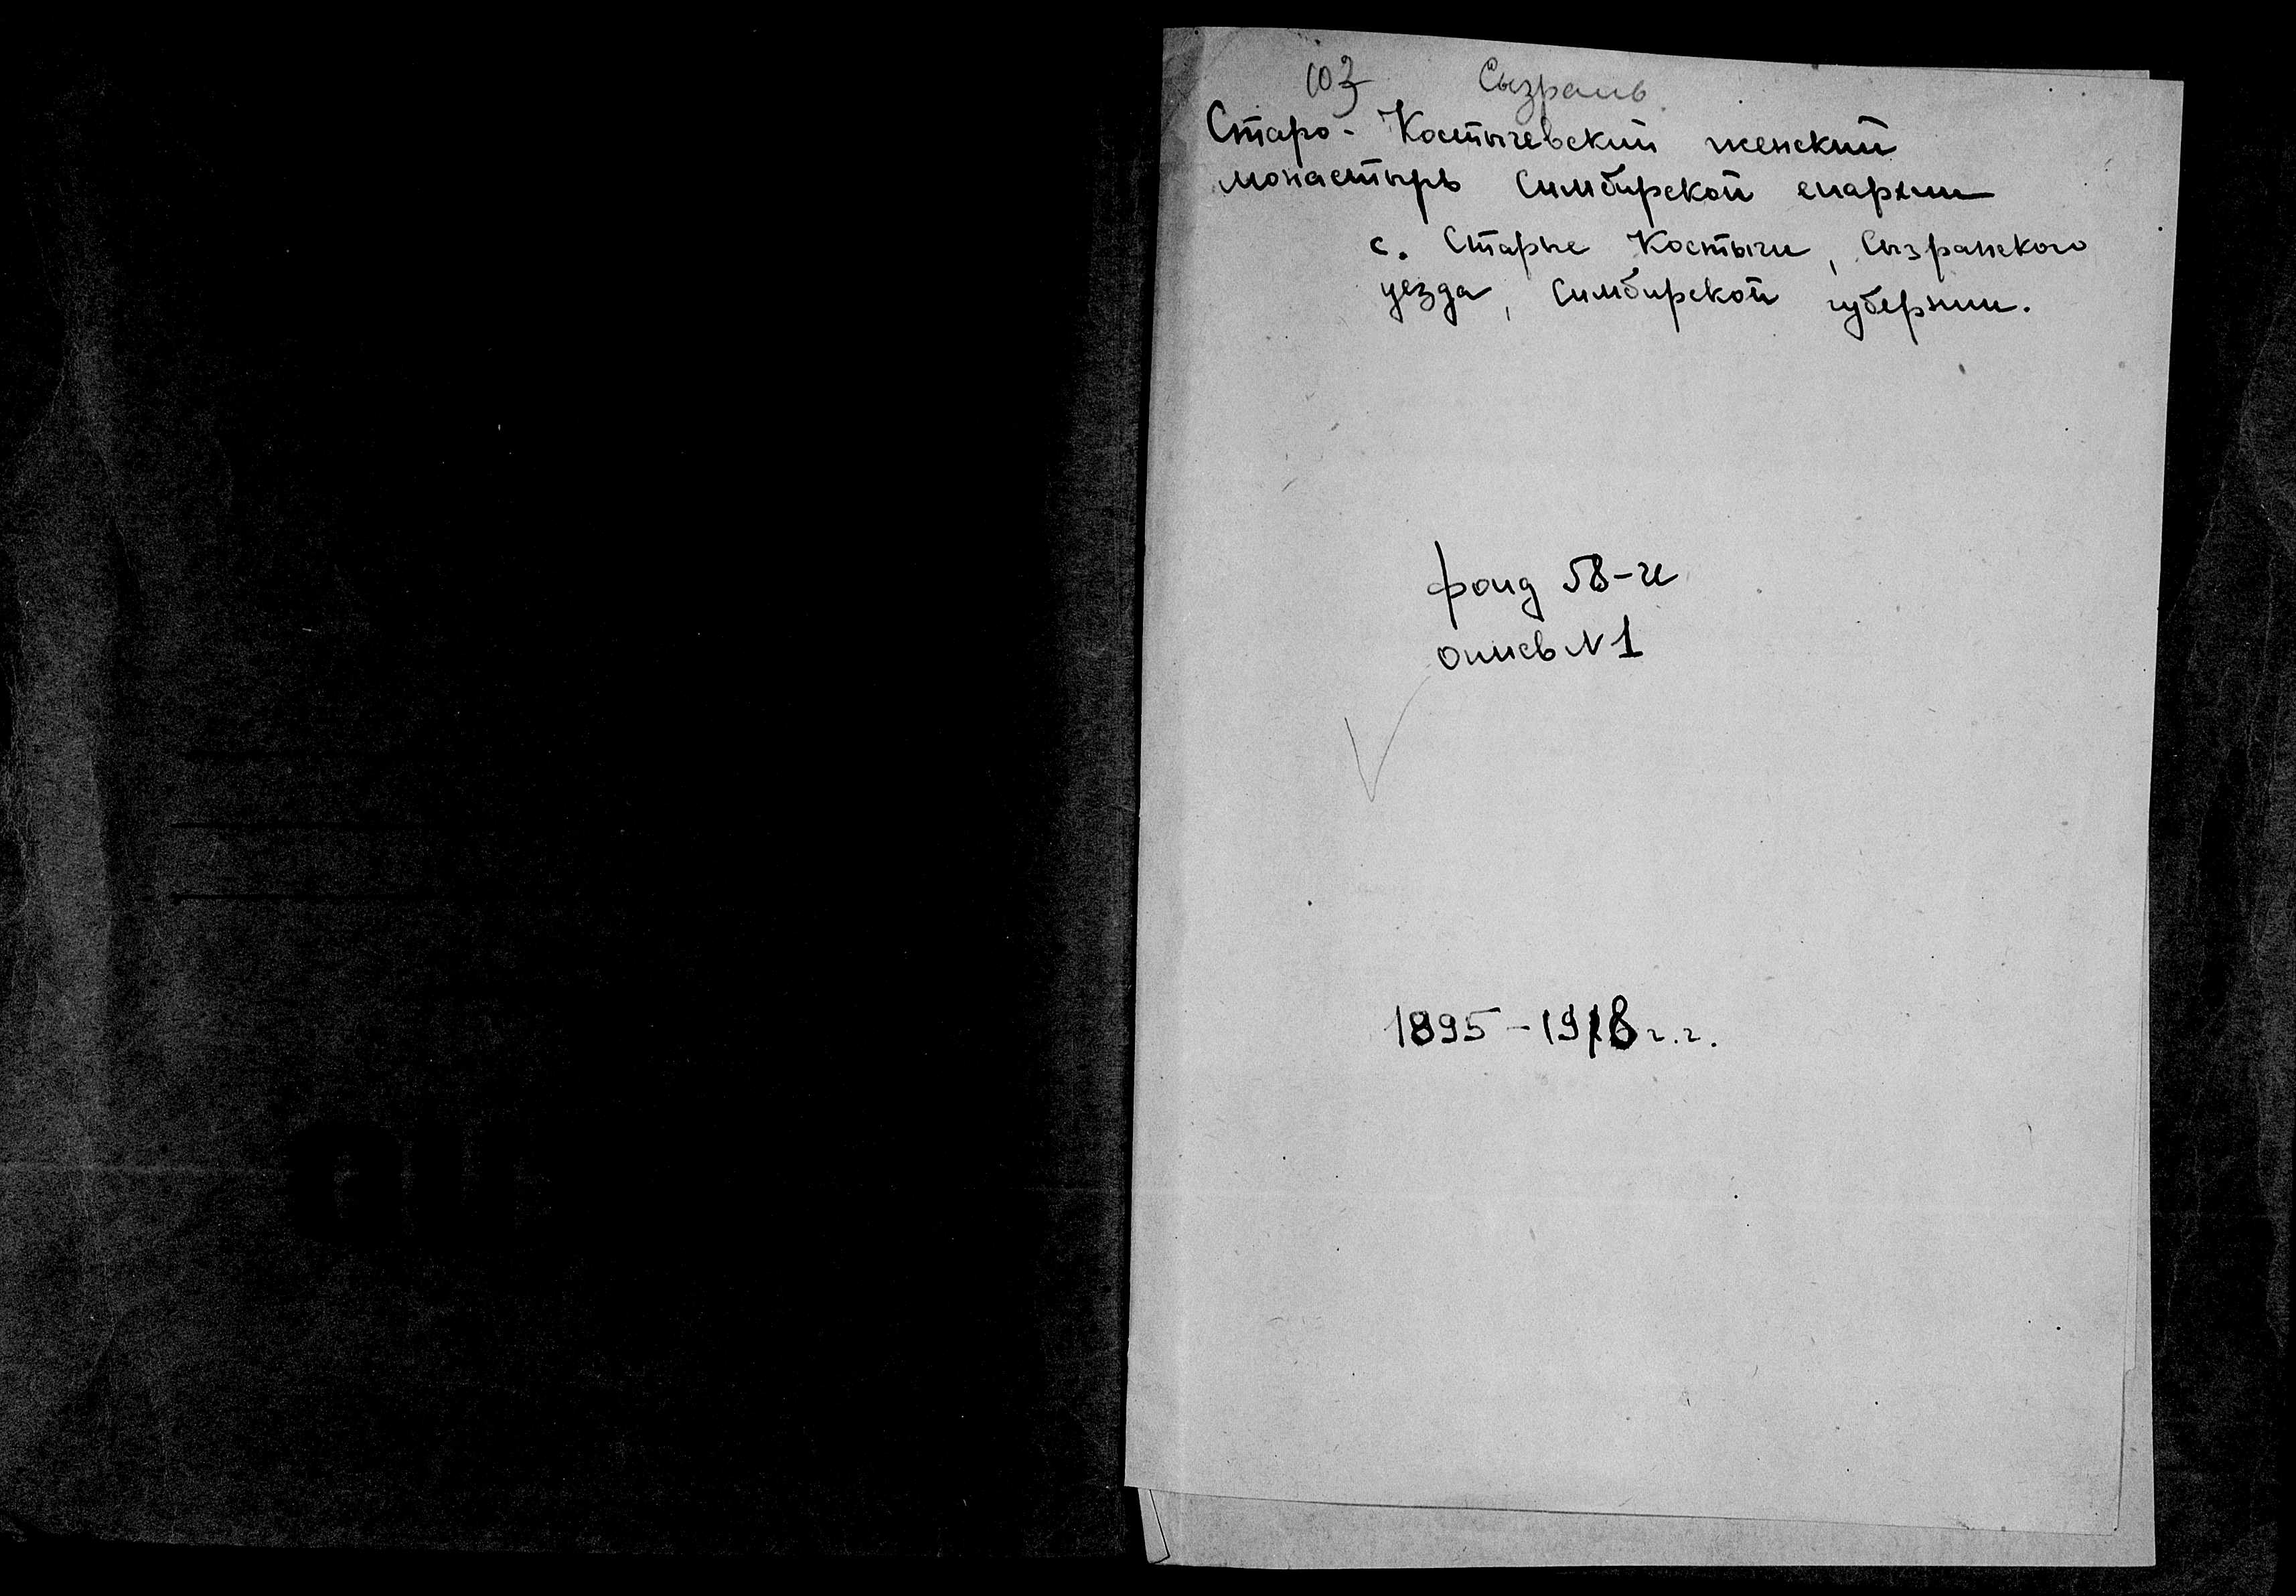 103 Сызрань
Старо-Костычевский женский
монастырь Симбирской епархии
с. Старые Костычи, Сызранского
уезда, Симбирской губернии.
фонд 58-и
опись N1
1895-1918 г.г.